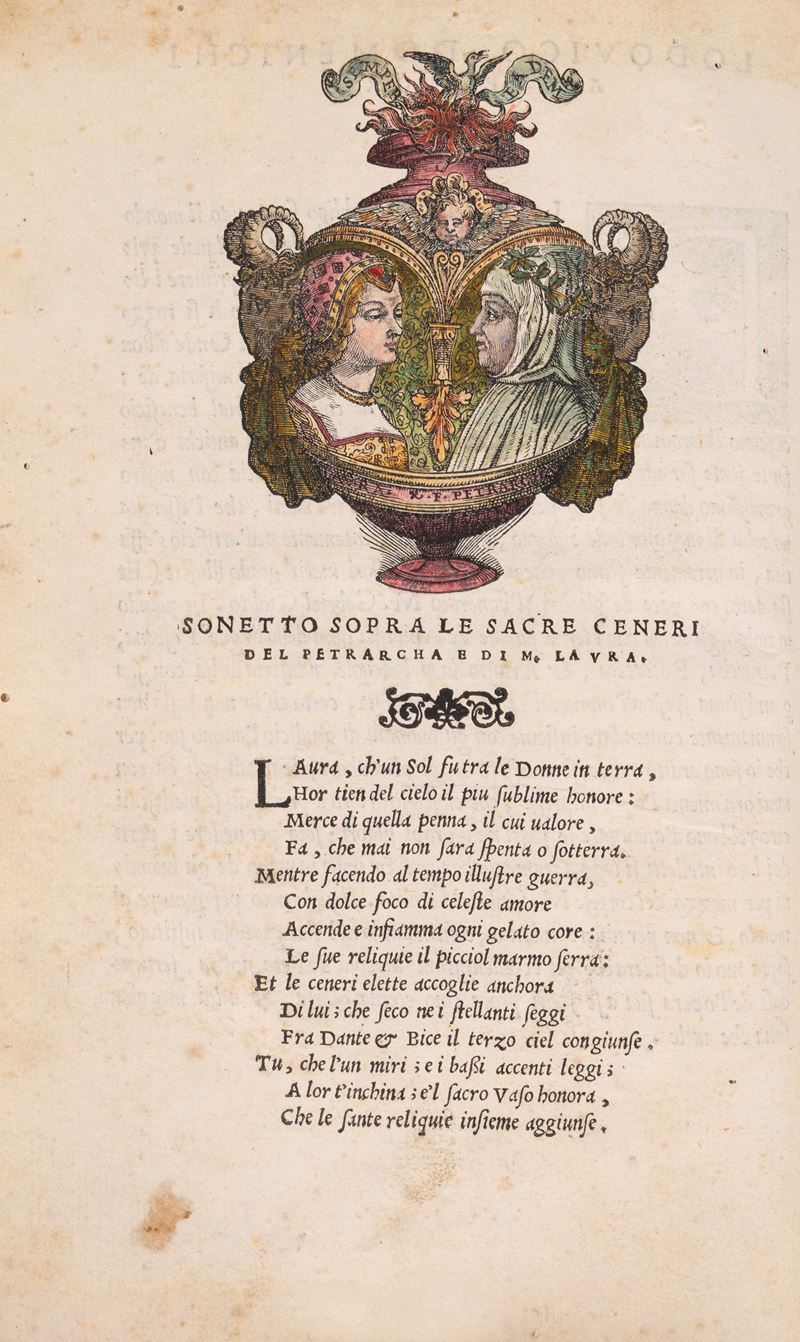 SEMPER EADEM
RA. &. F. PETRARC
SONETTO SOPRA LE SACRE CENERI
DEL PETRARCHA E DI M. LAVRA.
LAura, ch'un Sol fu tra le Donne in terra,
Hor tien del cielo il piu ſublime honore:
Merce di quella penna, il cui ualore,
Fa, che mai non ſara ſpenta o ſotterra.
Mentre facendo al tempo illuſtre guerra,
Con dolce foco di celeſte amore
Accende e infiamma ogni gelato core:
Le ſue reliquie il picciol marmo ſerra:
Et le ceneri elette accoglie anchora
Di lui; che ſeco ne i ſtellanti ſeggi
Fra Dante & Bice il terzo ciel congiunſe.
Tu, che l'un miri; e i baßi accenti leggi;
A lor t'inchina; e'l ſacro Vaſo honora,
Che le ſante reliquie inſieme aggiunſe.